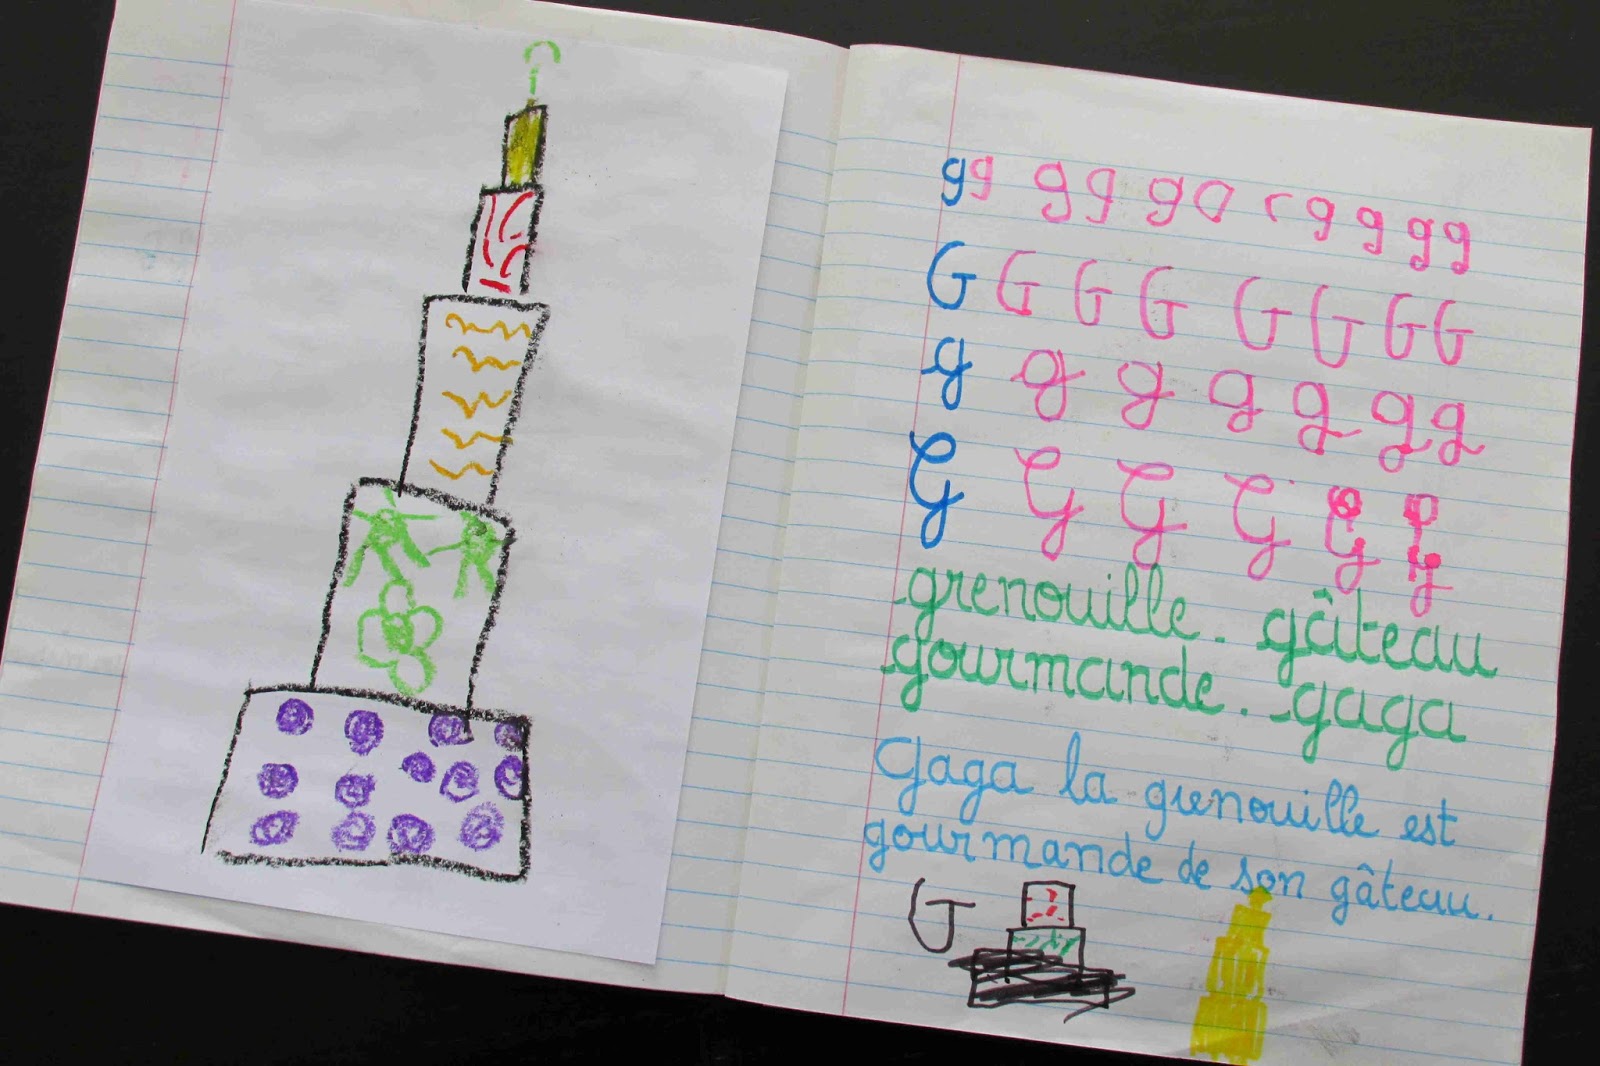 gg gg ga c g g gg
G G G G G G G G
g g g g g g g
G G G G G G
grenouille. gâteau
gourmande. gaga
Gaga la grenouille est
gourmande de son gâteau.
G